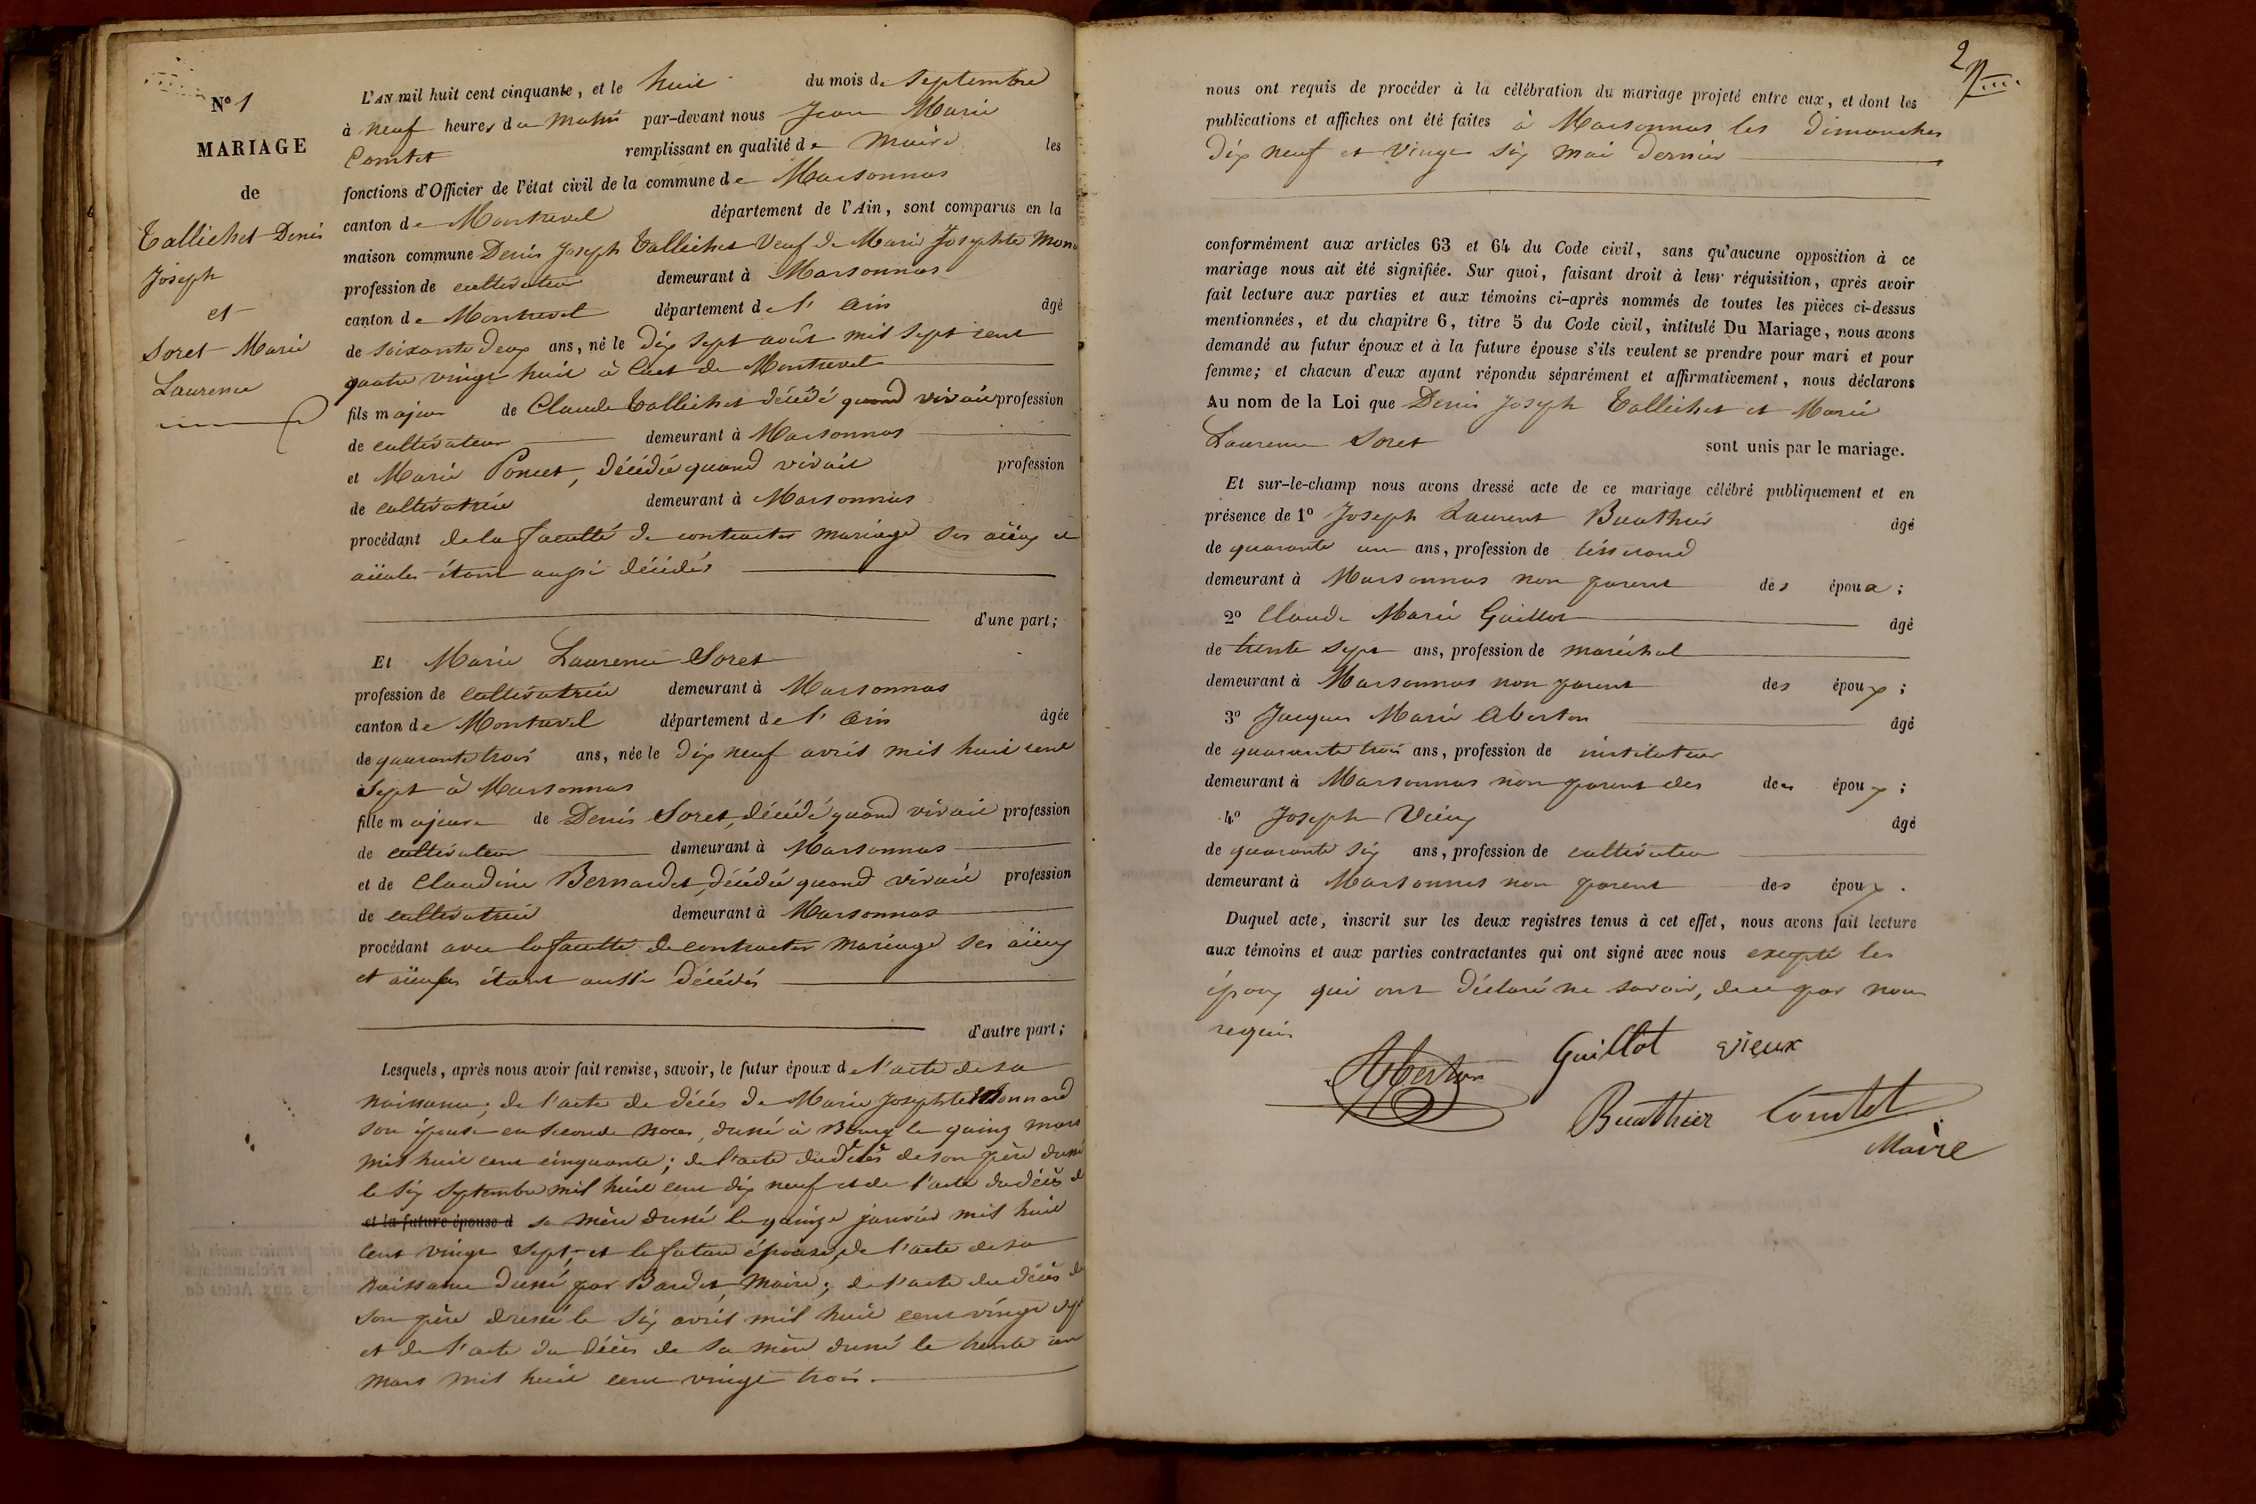 N° 1
MARIAGE
de
Tallichet Denis
Joseph
et
Soret Marie
Laurence
L'AN mil huit cent cinquante, et le huit du mois de Septembre
à neuf heures du matin par-devant nous Jean Marie
Comtet remplissant en qualité de Maire les
fonctions d'Officier de l'état civil de la commune de Marsonnas
canton de Montrevel département de l'Ain, sont comparus en la
maison commune Denis Joseph Tallichet Veuf de Marie Josephte Monn
profession de cultivateur demeurant à Marsonnas
canton de Montrevel département de l'ain âgé
de soixante deux ans, né le dix sept août mil sept cent
quatre vingt huit à Cuet de Montrevel
fils majeur de Claude Tallichet décédé quand vivait profession
de cultivateur demeurant à Marsonnas
et Marie Poncet, décédée quand vivait profession
de cultivatrice demeurant à Marsonnas
procédant de la faculté de contracter mariage ses aïeux et
aïeules étant aussi décédés
d'une part;
Et Marie Laurence Soret
profession de cultivatrice demeurant à Marsonnas
canton de Montrevel département de l'ain âgée
de quarante trois ans, née le dix neuf avril mil huit cent
Sept à Marsonnas
fille majeure de Denis Soret, décédé quand vivait profession
de cultivateur demeurant à Marsonnas
et de Claudine Bernardet, décédée quand vivait profession
de cultivatrice demeurant à Marsonnas
procédant avec la faculté de contracter mariage ses aïeux
et aïeules étant aussi décédés
d'autre part;
Lesquels, après nous avoir fait remise, savoir, le futur époux de l'acte de sa
naissance; de l'acte de décès de Marie Josephte Monnard
son épouse en seconde noces, dressé à Bourg le quinz mars
mil huit cent cinquante; de l'acte du décès de son père dressé
le six septembre mil huit cent dix neuf et de l'acte du décès de
et la future épouse d sa mère dressé le quinze janvier mil huit
cent vingt sept, et la future épouse, de l'acte de sa
naissance dressé par Bardet, Maire; de l'acte du décès de
son père dressé le six avril mil huit cent vingt sept
et de l'acte du décès de sa mère dressé le trente un
mars mil huit cent vingt trois.
2
nous ont requis de procéder à la célébration du mariage projeté entre eux, et dont les
publications et affiches ont été faites à Marsonnas les dimanches
dix neuf et vingt six mai dernier
conformément aux articles 63 et 64 du Code civil, sans qu'aucune opposition à ce
mariage nous ait été signifiée. Sur quoi, faisant droit à leur réquisition, après avoir
fait lecture aux parties et aux témoins ci-après nommés de toutes les pièces ci-dessus
mentionnées, et du chapitre 6, titre 5 du Code civil, intitulé Du Mariage, nous avons
demandé au futur époux et à la future épouse s'ils veulent se prendre pour mari et pour
femme; et chacun d'eux ayant répondu séparément et affirmativement, nous déclarons
Au nom de la Loi que Denis Joseph Tallichet et Marie
Laurence Soret sont unis par le mariage.
Et sur-le-champ nous avons dressé acte de ce mariage célébré publiquement et en
présence de 1° Joseph Laurent Buathier âgé
de quarante un ans, profession de tisserand
demeurant à Marsonnas non parent des époux;
2° Claude Marie Guillot âgé
de trente sept ans, profession de maréchal
demeurant à Marsonnas non parent des époux;
3° Jacques Marie Aberton âgé
de quarante trois ans, profession de instituteur
demeurant à Marsonnas non parent des des époux;
4° Joseph Vieux âgé
de quarante six ans, profession de cultivateur
demeurant à Marsonnas non parent des époux.
Duquel acte, inscrit sur les deux registres tenus à cet effet, nous avons fait lecture
aux témoins et aux parties contractantes qui ont signé avec nous excepté les
époux qui ont déclaré ne savoir, de ce par nous
requis
Aberton Guillot vieux
Buathier Comtet
Maire